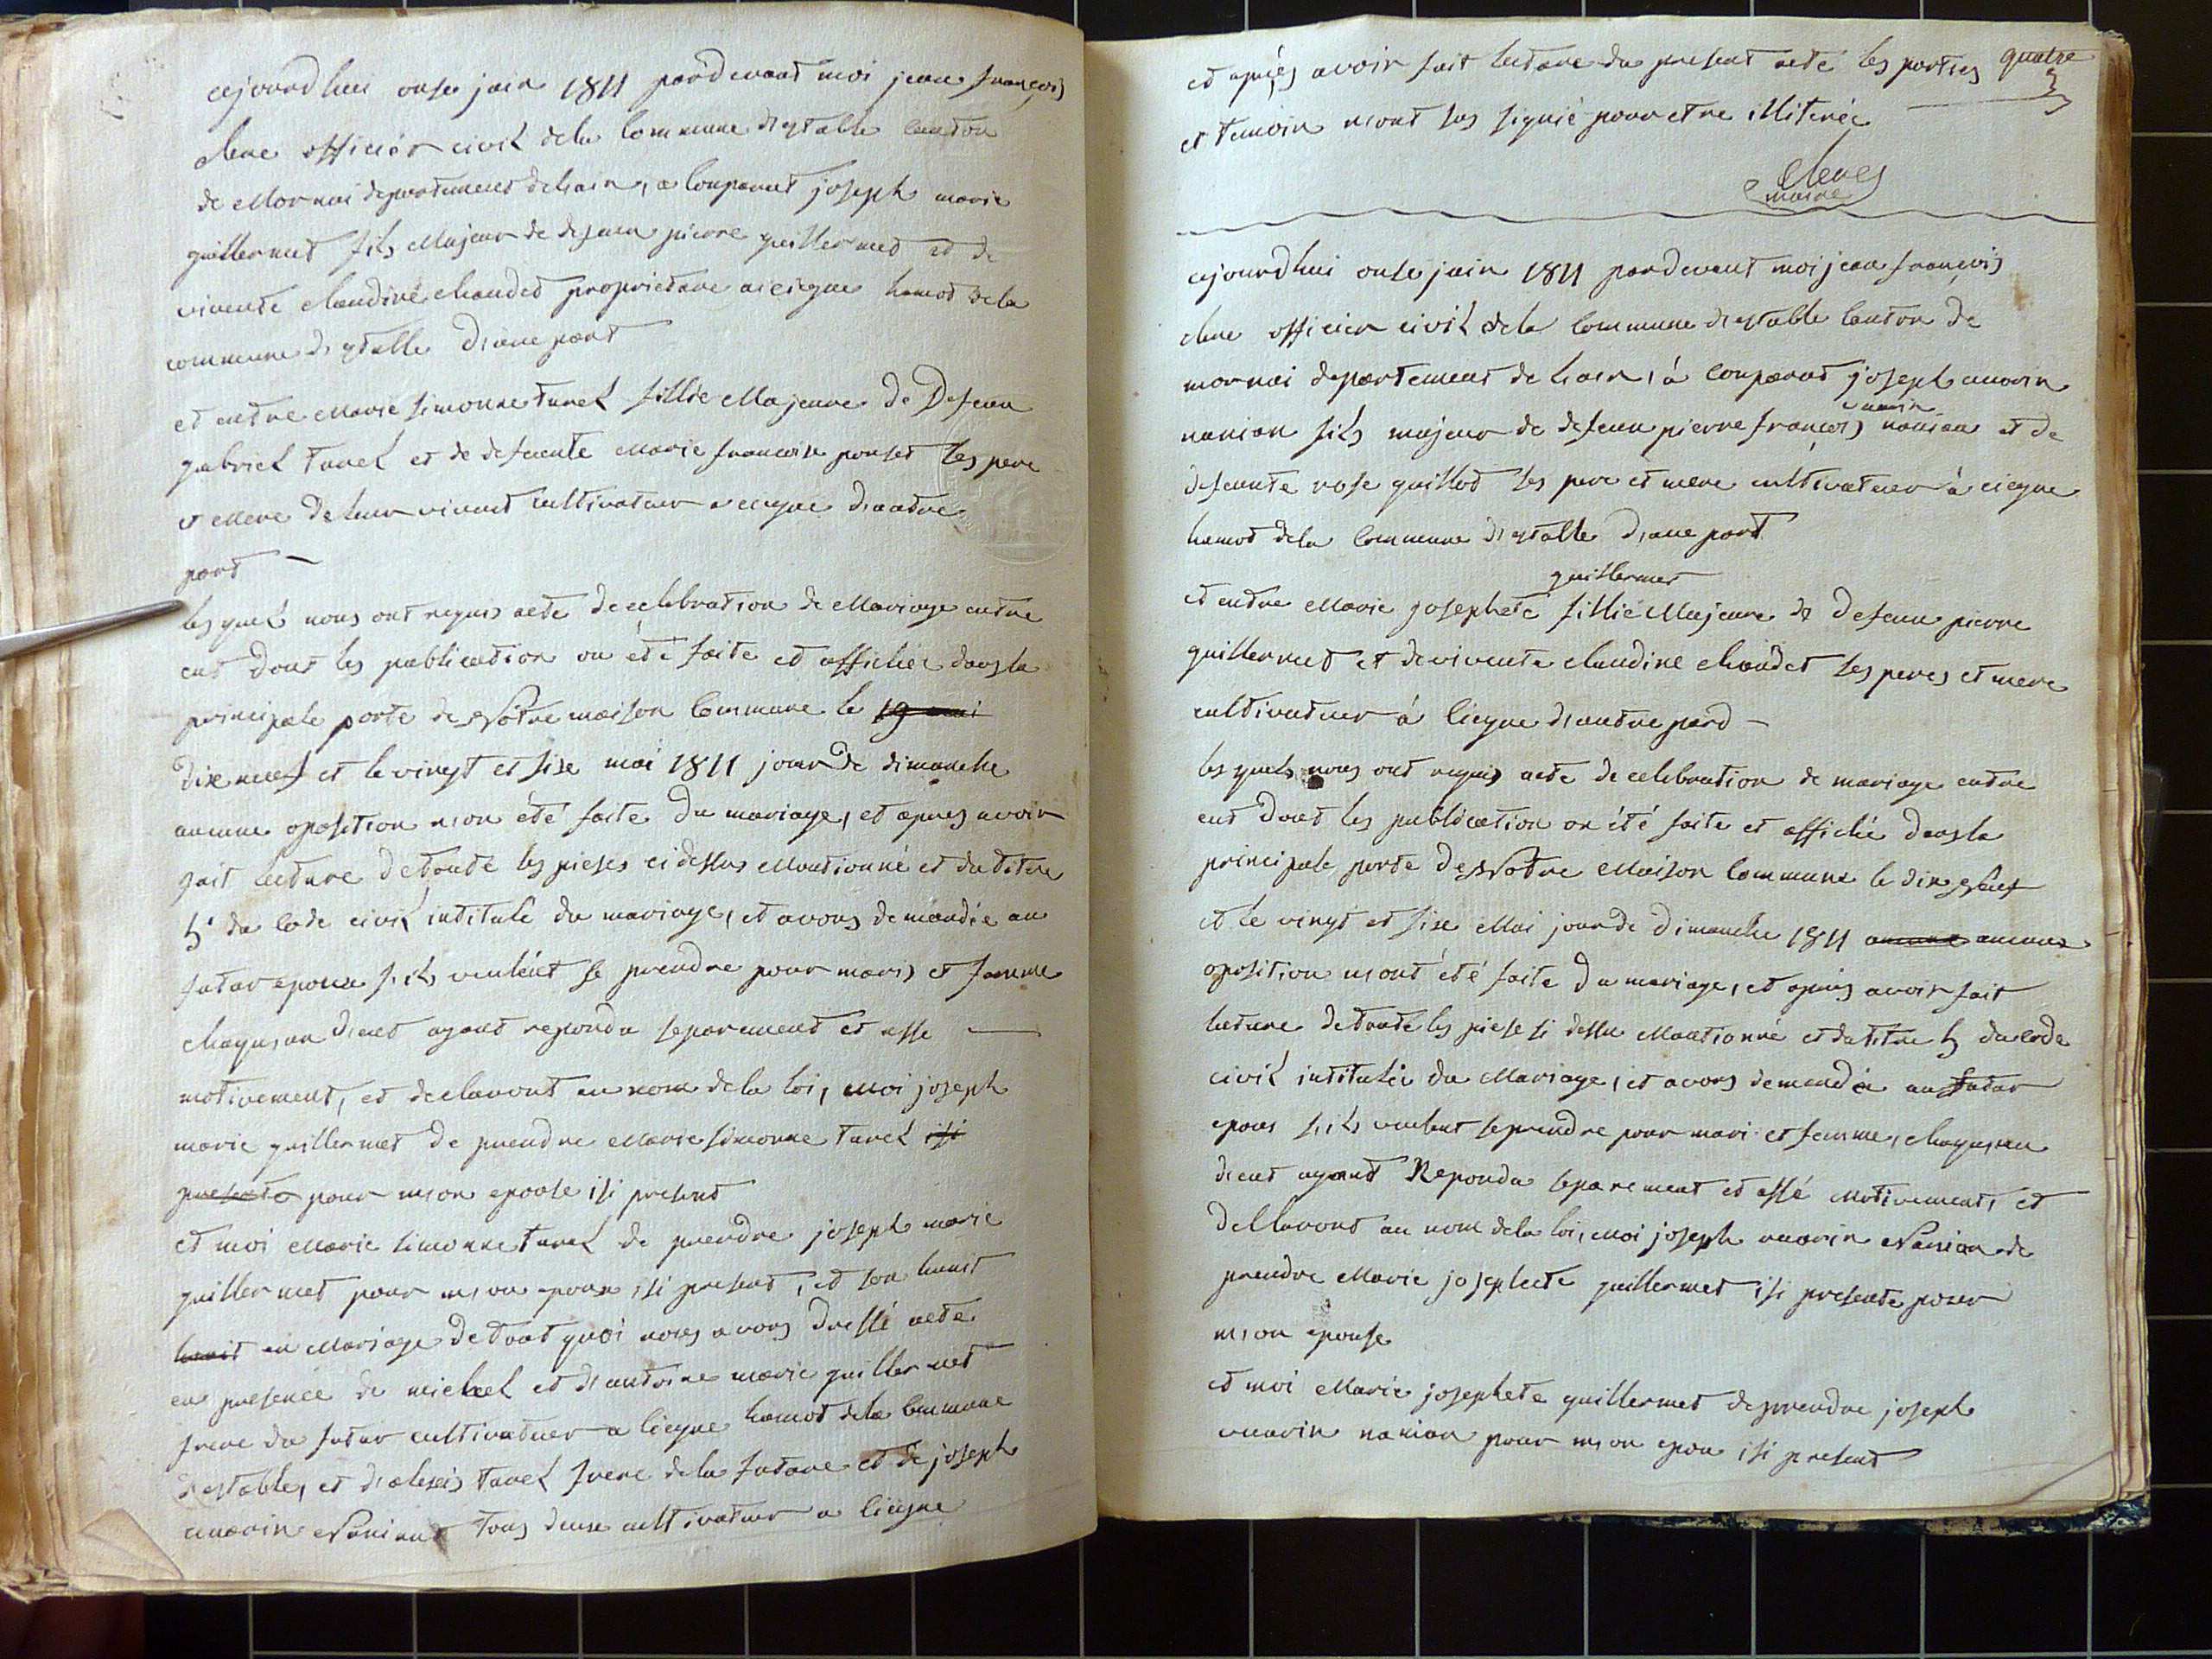 aujourdhui onse juin 1811 pardevant moi jean françois
clene officiér civil dela commune destable canton
de Mornai departement de lain, a comparut joseph marie
guillermet fils Majeur de defuen pierre guillermet et de
vivente claudine chaudet proprietaire a ciegne hamot dela
commune destable d,une part
et entre Marie simonne turel fillie Majeure de Defeun
gabriel turel et de defuente Marie francoise ponset ses pere
et Mere de leur vivent cultivateur a ciegne d,autre
part —
lesquel nous ont requis acte de celebration de Mariage entre
eut dont les publication on été faite et affichée dans la
principale porte de Nôtre maison Commune le 19 mai
dixneuf et le vingt et sixe mai 1811 jour de dimanche
aucune oposition n,on été faite du mariage, et apres avoir
fait lecture de toute les pieses ci dessus Mantionné et du titre
5. du code civil intitule du mariage, et avons demandée au
futur epoux s,ils veulent se prendre pour maris et famme
chaqu,un d,eut ayant repondu séparement et affe —
motivement, et declaront au nom dela loi, Moi joseph
marie guillermet de prendre Marie simonne turel isi
presente pour m,on epouse isi present
et moi Marie simonne turel de prendre joseph marie
guillermet pour m,on epoux isi present, et son hunit
hunit en Mariage de tout quoi nous avons dressé acte
en presence de michel et d,antoine marie guillermet
frere du futur cultivateur a ciegne hamot dela commune
d,estable, et d,alexis turel frere dela future et de joseph
marin Naniant tous deuse cultivateur a ciegne
quatre
et après avoir fait lecture du present acte les partis
et temoin n,ont sus signié pour etre illiterée
clenet
maire
aujourdhui onse juin 1811 pardevant moi jean françois
clene officier civil dela commune destable canton de
mornai departement de lain, à comparut joseph marin
nanian fils majeur de defeun pierre françois marin nanian et de
defeunte rose guillot ses pere et mere cultivateur à ciegne
hamot dela Commune destable d,une part
guillermet
et entre Marie josephete fillie Majeure de defeun pierre
guillermet et de vivente claudine chaudet ses peres et mere
cultivateur à ciegne d,autre pard —
lesquels nous ont requis acte de celebration de mariage entre
eut dont les publication on été faite et affiché dans la
principale porte de Notre Maison Commune le dix Neuf
et le vingt et sixe Mai jour de dimanche 1811 aucune aucune
oposition n,ont été faite du mariage, et apres avoir fait
lecture de toute les piese si dessu Mantionné et du titre 5 du code
civil intitulée du Mariage, et avons demandée au futur
epous s,ils veulent se prendre pour mari et femme, chaqu,un
d,eut ayant Repondu separement et affé Motivement, et
dellaront au nom dela loi, moi joseph marin Nanian de
prendre Marie josephete guillermet isi presente pour
m,on epouse
et moi Marie josephete guillermet de prendre joseph
marin nanian pour m,on epou isi present